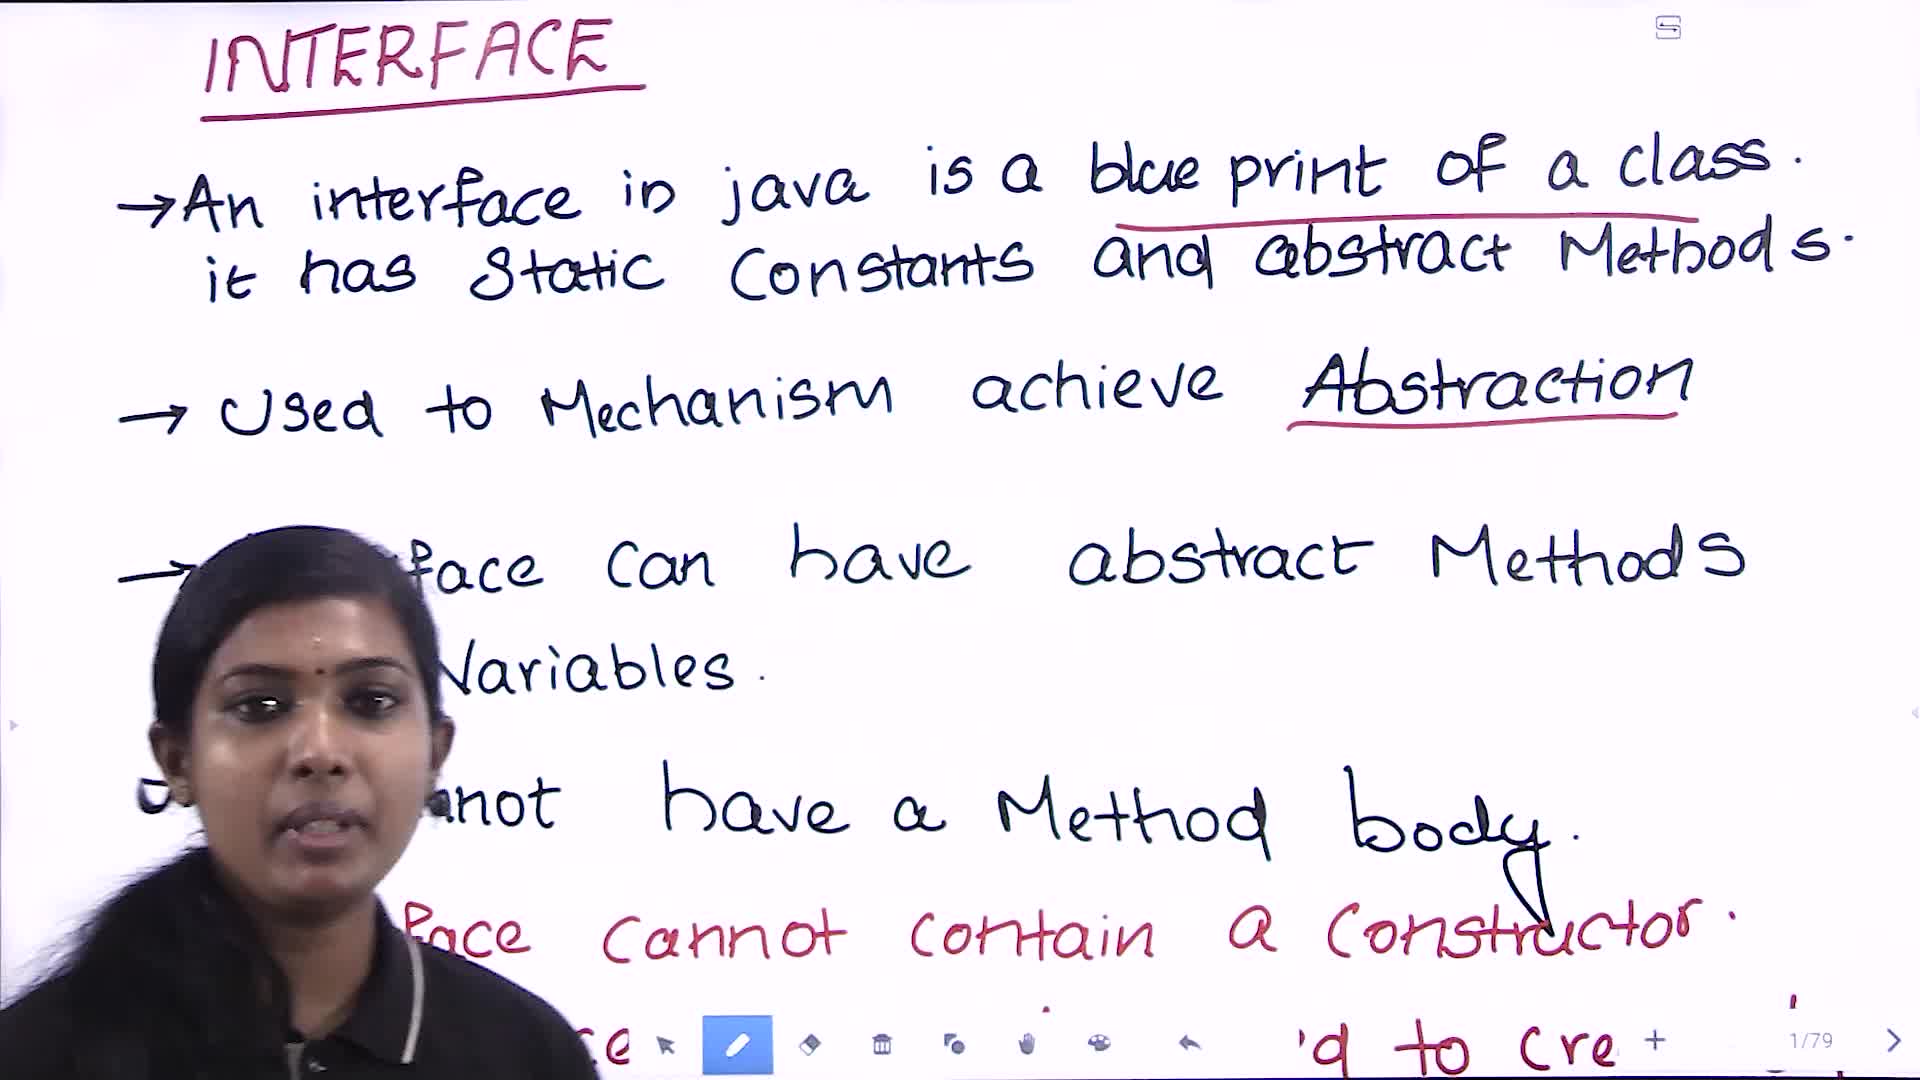 INTERFACE
→An interface in java is a blue print of a class.
it has Static Constants and abstract Methods.
→ Used to Mechanism achieve Abstraction
→ face can have abstract Methods
Variables.
have a Method body.
face cannot contain a constructor.
to cre
1/79